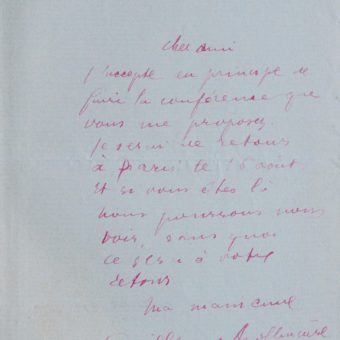 cher ami
j'accepte en principe de
faire la conférence que
vous me proposez
je serai de retour
à Paris le 15 août
Et si vous êtes là
nous pourrons nous
voir, sans quoi
ce sera à votre
retour
Ma main
Apollinaire